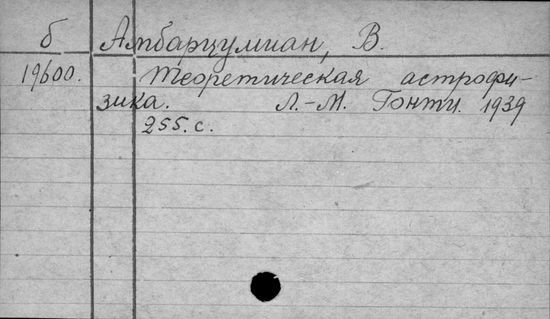 б Амбарцумиан, В.
19600. Теоретическая астрофи-
зика. Л.-М. Гонти. 1939
255. с.